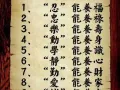 1. “忍” 能養福
2. “忠” 能養祿
3. “樂” 能養壽
4. “動” 能養身
5. “學” 能養識
6. “靜” 能養心
7. “勤” 能養財
8. 能養家